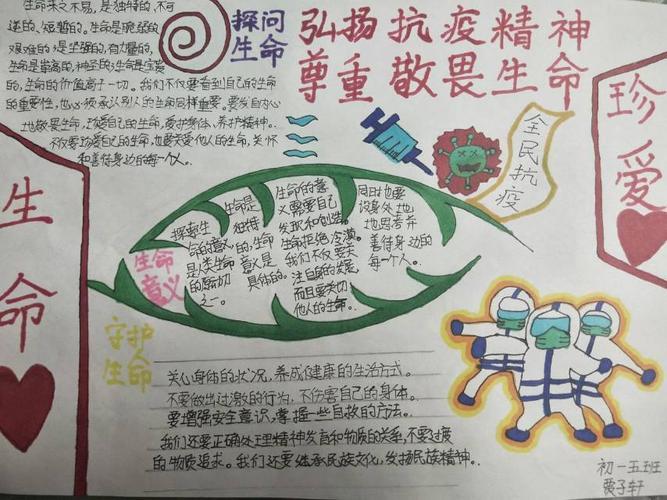 生命来之不易，是独特的，不可
逆的，短暂的。生命是脆弱的
艰难的，是坚强的，有力量的，
生命是崇高的，神圣的，生命是宝贵
的，生命的价值高于一切。我们不仅要看到自己的生命
的重要性，也必须承认别人的生命同样重要。要发自内心
地敬畏生命，珍爱自己的生命，爱护身体，养护精神。
不仅要珍爱自己的生命，也要关爱他人的生命，关怀
和善待身边的每一个人。
探问
生命
弘扬抗疫精神
尊重敬畏生命
全民抗疫
珍爱
生命
生命
意义
探索生
命的意义
是人类生命
的原动力
之一。
生命是
独特
的，生命
意义是
具体的。
生命的意
义需要自己
发现和创造。
生命拒绝冷漠。
我们不仅要关
注自身的发展，
而且要关切
他人的生命。
同时也要
设身处地
地思考并
善待身边的
每一个人。
守护
生命
关心身体的状况，养成健康的生活方式。
不要做出过激的行为，不伤害自己的身体。
要增强安全意识，掌握一些自救的方法。
我们还要正确处理精神发育和物质的关系，不要过度
的物质追求。我们还要继承民族文化，发扬民族精神。
初一五班
子轩